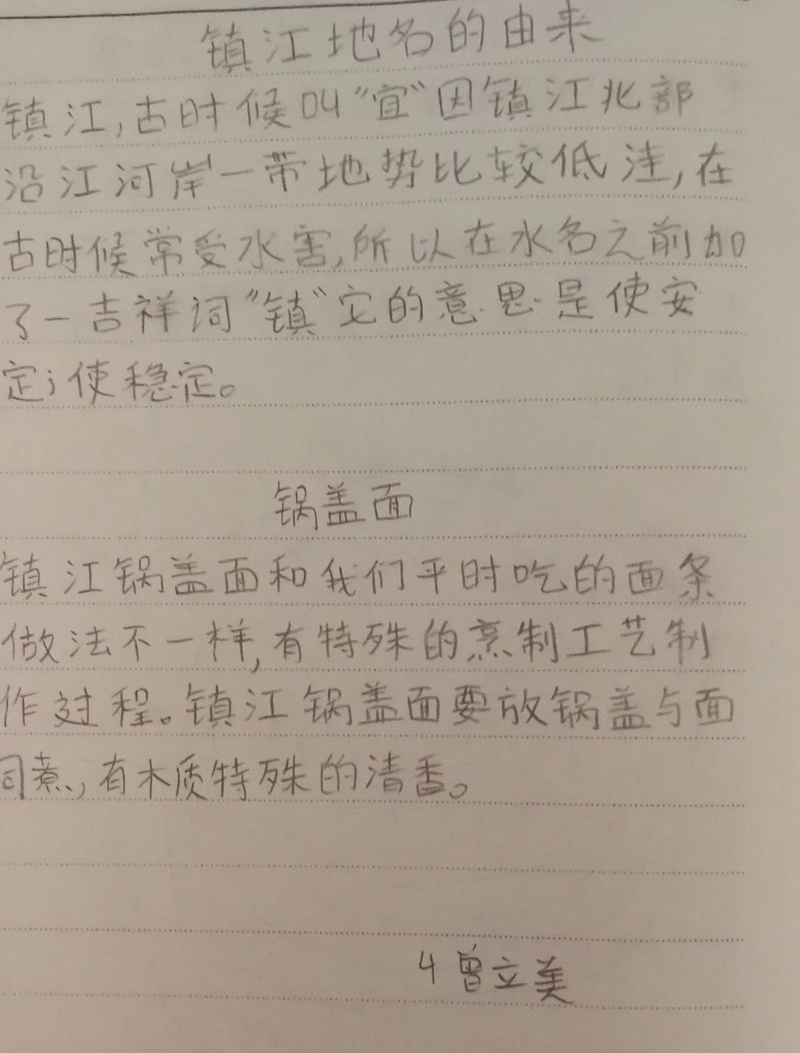 镇江地名的由来
镇江,古时候叫“宜”因镇江北部
沿江河岸一带地势比较低洼,在
古时候常受水害,所以在水名之前加
了一吉祥词“镇”它的意思是使安
定;使稳定。
锅盖面
镇江锅盖面和我们平时吃的面条
做法不一样,有特殊的烹制工艺制
作过程。镇江锅盖面要放锅盖与面
同煮,有木质特殊的清香。
4 曾立美